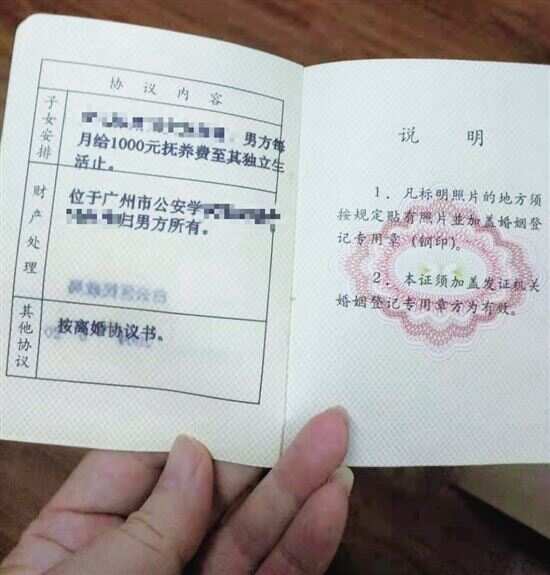 协议内容
子女安排
男方每
月给1000元抚养费至其独立生
活止。
财产处理
位于广州市公安学
归男方所有。
其他协议
按离婚协议书。
说 明
1.凡标明照片的地方须
按规定贴有照片并加盖婚姻登
记专用章(钢印)。
2.本证须加盖发证机关
婚姻登记专用章方为有效。